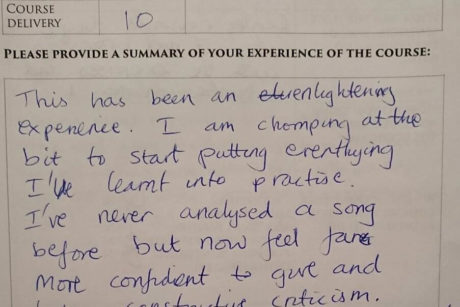 COURSE
DELIVERY
10
PLEASE PROVIDE A SUMMARY OF YOUR EXPERIENCE OF THE COURSE:
This has been an enlightening
experience. I am chomping at the
bit to start putting everything
I've learnt into practise.
I've never analysed a song
before but now feel far
more confident to give and
constructive criticism.